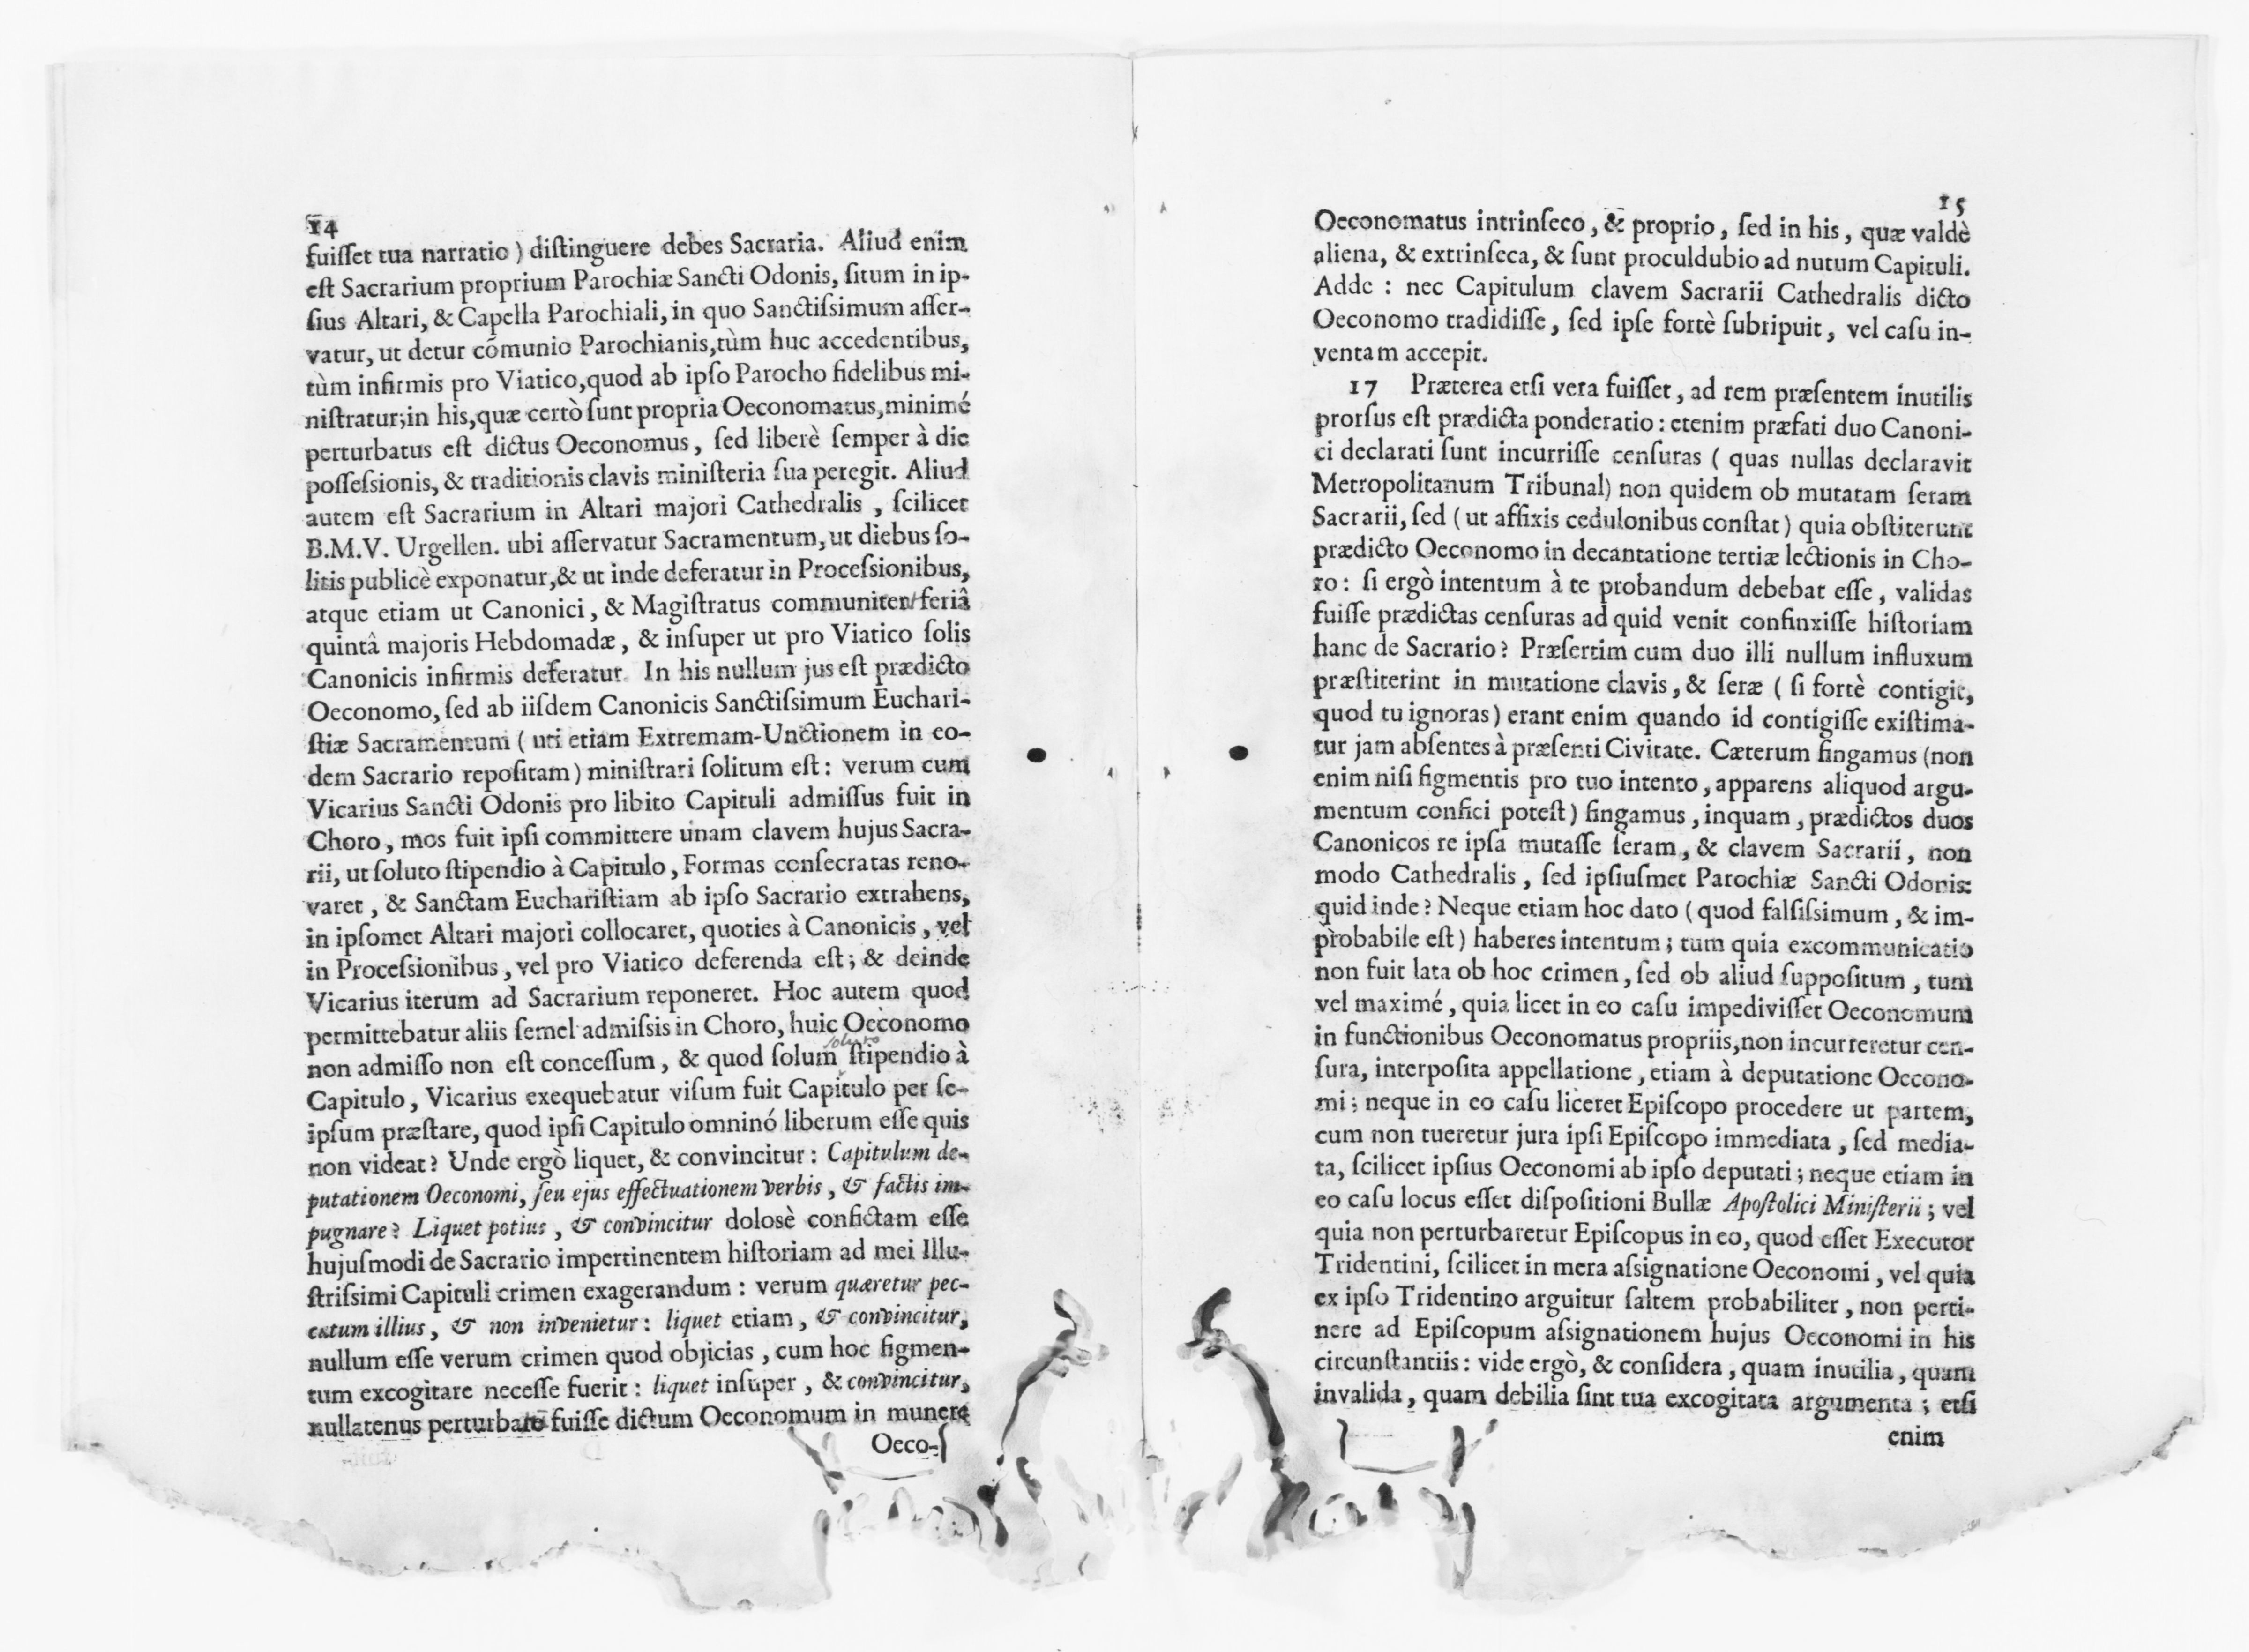 14
fuiſſet tua narratio) diſtinguere debes Sacraria. Aliud enim
eſt Sacrarium proprium Parochiæ Sancti Odonis, ſitum in ip-
ſius Altari, & Capella Parochiali, in quo Sanctiſsimum aſſer-
vatur, ut detur cõmunio Parochianis, tùm huc accedentibus,
tùm infirmis pro Viatico, quod ab ipſo Parocho fidelibus mi-
niſtratur; in his, quæ certò ſunt propria Oeconomatus, minimé
perturbatus eſt dictus Oeconomus, ſed liberè ſemper à die
poſſeſsionis, & traditionis clavis miniſteria ſua peregit. Aliud
autem eſt Sacrarium in Altari majori Cathedralis, ſcilicet
B.M.V. Urgellen. ubi aſſervatur Sacramentum, ut diebus ſo-
litis publicè exponatur, & ut inde deferatur in Proceſsionibus,
atque etiam ut Canonici, & Magiſtratus communiter feriâ
quintâ majoris Hebdomadæ, & inſuper ut pro Viatico ſolis
Canonicis infirmis deferatur. In his nullum jus eſt prædicto
Oeconomo, ſed ab iiſdem Canonicis Sanctiſsimum Euchari-
ſtiæ Sacramentum (uti etiam Extremam-Unctionem in eo-
dem Sacrario repoſitam) miniſtrari ſolitum eſt: verum cum
Vicarius Sancti Odonis pro libito Capituli admiſſus fuit in
Choro, mos fuit ipſi committere unam clavem hujus Sacra-
rii, ut ſoluto ſtipendio à Capitulo, Formas conſecratas reno-
varet, & Sanctam Euchariſtiam ab ipſo Sacrario extrahens,
in ipſomet Altari majori collocaret, quoties à Canonicis, vel
in Proceſsionibus, vel pro Viatico deferenda eſt; & deinde
Vicarius iterum ad Sacrarium reponeret. Hoc autem quod
permittebatur aliis ſemel admiſsis in Choro, huic Oeconomo
soluto
non admiſſo non eſt conceſſum, & quod ſolum ſtipendio à
Capitulo, Vicarius exequebatur viſum fuit Capitulo per ſe-
ipſum præſtare, quod ipſi Capitulo omninó liberum eſſe quis
non videat? Unde ergò liquet, & convincitur: Capitulum de-
putationem Oeconomi, ſeu ejus effectuationem verbis, & factis im-
pugnare? Liquet potius, & convincitur dolosè confictam eſſe
hujuſmodi de Sacrario impertinentem hiſtoriam ad mei Illu-
ſtriſsimi Capituli crimen exagerandum: verum quæretur pec-
catum illius, & non invenietur: liquet etiam, & convincitur,
nullum eſſe verum crimen quod objicias, cum hoc figmen-
tum excogitare neceſſe fuerit: liquet inſuper, & convincitur,
nullatenus perturbatũ fuiſſe dictum Oeconomum in munere
Oeco-
15
Oeconomatus intrinſeco, & proprio, ſed in his, quæ valdè
aliena, & extrinſeca, & ſunt proculdubio ad nutum Capituli.
Adde: nec Capitulum clavem Sacrarii Cathedralis dicto
Oeconomo tradidiſſe, ſed ipſe fortè ſubripuit, vel caſu in-
ventam accepit.
17 Præterea etſi vera fuiſſet, ad rem præſentem inutilis
prorſus eſt prædicta ponderatio: etenim præfati duo Canoni-
ci declarati ſunt incurriſſe cenſuras (quas nullas declaravit
Metropolitanum Tribunal) non quidem ob mutatam ſeram
Sacrarii, ſed (ut affixis cedulonibus conſtat) quia obſtiterunt
prædicto Oeconomo in decantatione tertiæ lectionis in Cho-
ro: ſi ergò intentum à te probandum debebat eſſe, validas
fuiſſe prædictas cenſuras ad quid venit confinxiſſe hiſtoriam
hanc de Sacrario? Præſertim cum duo illi nullum influxum
præſtiterint in mutatione clavis, & ſeræ (ſi fortè contigit,
quod tu ignoras) erant enim quando id contigiſſe exiſtima-
tur jam abſentes à præſenti Civitate. Cæterum fingamus (non
enim niſi figmentis pro tuo intento, apparens aliquod argu-
mentum confici poteſt) fingamus, inquam, prædictos duos
Canonicos re ipſa mutaſſe ſeram, & clavem Sacrarii, non
modo Cathedralis, ſed ipſiuſmet Parochiæ Sancti Odonis:
quid inde? Neque etiam hoc dato (quod falſiſsimum, & im-
probabile eſt) haberes intentum; tum quia excommunicatio
non fuit lata ob hoc crimen, ſed ob aliud ſuppoſitum, tum
vel maximé, quia licet in eo caſu impediviſſet Oeconomum
in functionibus Oeconomatus propriis, non incurreretur cen-
ſura, interpoſita appellatione, etiam à deputatione Oecono-
mi; neque in eo caſu liceret Epiſcopo procedere ut partem,
cum non tueretur jura ipſi Epiſcopo immediata, ſed media-
ta, ſcilicet ipſius Oeconomi ab ipſo deputati; neque etiam in
eo caſu locus eſſet diſpoſitioni Bullæ Apoſtolici Miniſterii; vel
quia non perturbaretur Epiſcopus in eo, quod eſſet Executor
Tridentini, ſcilicet in mera aſsignatione Oeconomi, vel quia
ex ipſo Tridentino arguitur ſaltem probabiliter, non perti-
nere ad Epiſcopum aſsignationem hujus Oeconomi in his
circunſtantiis: vide ergò, & conſidera, quam inutilia, quam
invalida, quam debilia ſint tua excogitata argumenta; etſi
enim